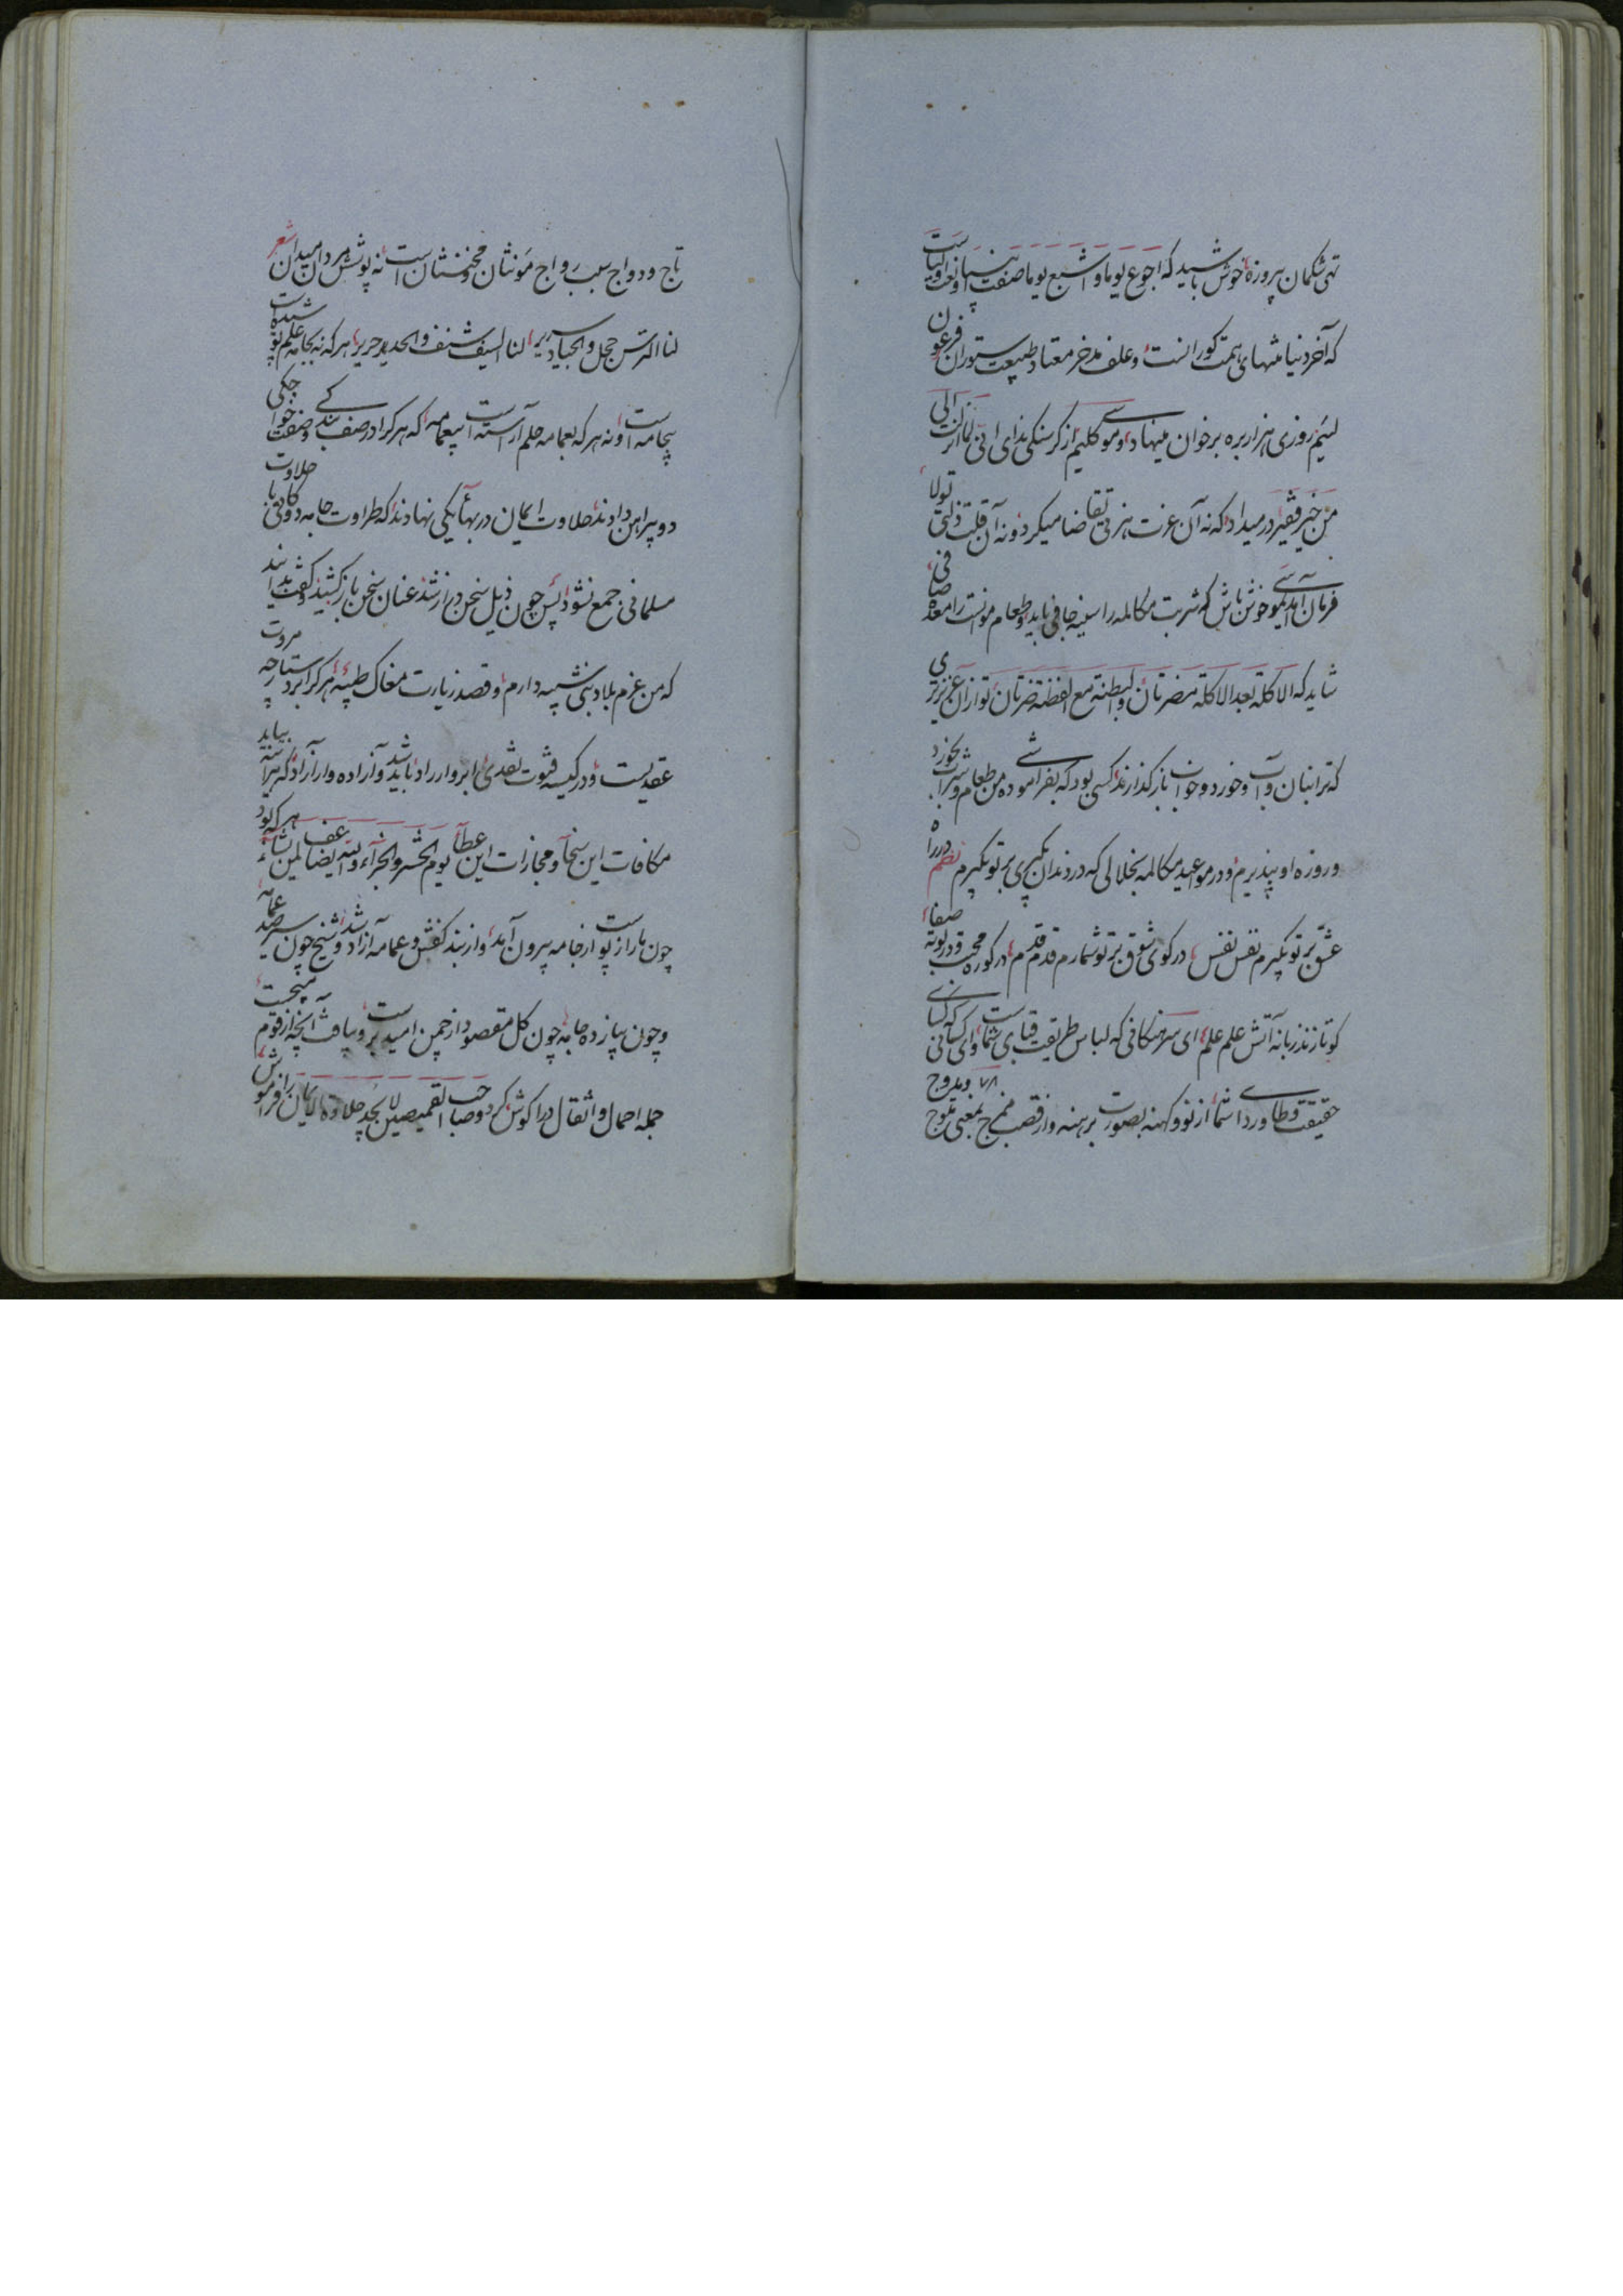 تهی شکمان پیروزه خوش باشید که اجوع یوما و اشبع یوما صفت انبیا و نعت اولیاست
که آخر دنیا منتهای همت کورانست و علف مدخر معتاد طبیعت ستوران فرعون
لئیم روزی هزار بره بر خوان مینهاد و موسی کلیم از گرسنگی ندای انی لما انزلت الی
من خیر فقیر در میداد که نه آن عزت هنر تقاضا میکرد و نه آن قلت ذلتی تولا
فرمان آمد که ای موسی خوش باش که شربت مکالمه را سینه جافی باید و طعام موانست را معده صافی
شاید که الاکلة بعد الاکلة مضرتان و البطنة مع الفطنة ضرتان تو از آن عزیزتری
که ترا بنان و آب و خورد و خواب بازگذارند کسی بود که بفراموشی ده من طعام و شراب بخورد
و روزه او بپذیریم و در مواعید مکالمه بخلالی که در دندان بگیری بر تو بگیرم نظم در راه
عشق بر تو بگیرم نفس نفس در کوی شوق بر تو شمارم قدم قدم در کوره محبت و در بوته صفا
کو تا زند زبانه آتش علم علم ای سرهنگانی که لباس طریقت قبای شماست و ای کسانی که کسای
حقیقت وطای وردای شما از نو و کهنه بصورت برهنه و از قصب منسج بمعنی متوج ۷۸ و بدواج
تاج و دواج سبب رواج مونثان و مخنثان است نه پوشش مردان میدان شعر
لنا الترس حجل و الجیاد سریر لنا السیف شنف و الحدید حریر هر که نه بجامه علم پوشیده است
بیجامه است و نه هر که بعمامه حلم آراسته است بیعمامه که هر کرا در صف بندگی و صفت خواجگی
دو پیراهن دادند حلاوت ایمان در بهای یکی نهادند که طراوت جامه دوگانی با حلاوت
مسلمانی جمع نشود پس چون ذیل سخن دراز شد عنان سخن باز کشید و گفت بدانید
که من عزم بلاد بنی شیبه دارم و قصد زیارت مغاک طیبه هر کرا بر دستارچه مروت
عقدیست و در کیسه فتوت نقدی ابروار راد باید شد و آزاده وار آزاد که هر آینه بیاید
مکافات این سخا و مجازات این عطا یوم الحشر و الجزاء والله یضاعف لمن یشاء هر که بود
چون مار از پوست و از جامه بیرون آمد و از بند کفش و عمامه آزاد شد و شیخ چون سیر صد عمامه
و چون پیاز ده جامه چون کل مقصود از چمن امید بر وی بشکفت است آنچه از قوم میجست
جمله احمال و اثقال در آگوش کرد و صاحب القمیصین لا یجد حلاوة الایمان را فراموش